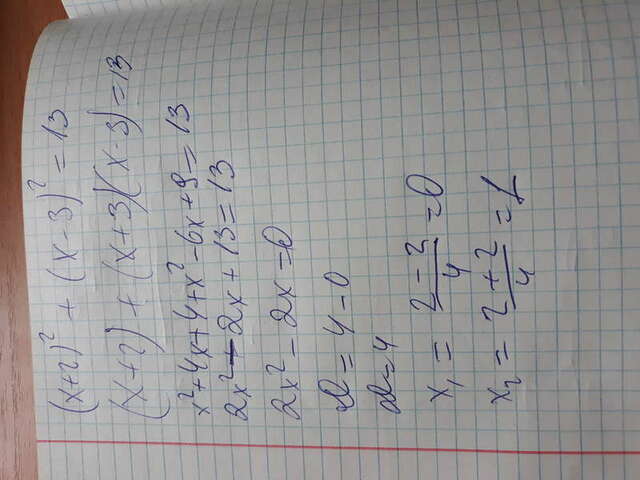 (x+2)² + (x-3)² = 13
(x+2) + (x+3)(x-3) = 13
x²+4x+4+x²-6x+9=13
2x²-2x+13=13
2x²-2x=0
D=4-0
D=4
x₁ = (2-2)/4 = 0
x₂ = (2+2)/4 = 1